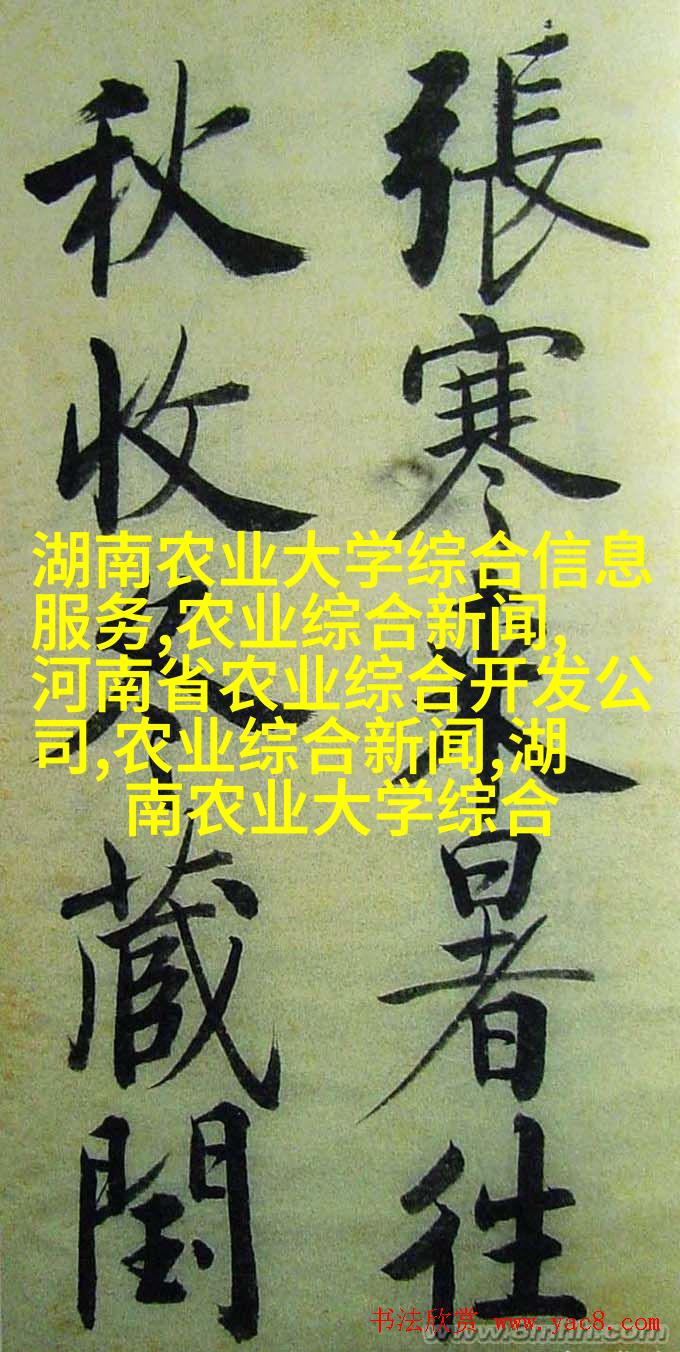 張寒来暑往
秋收冬蔵閏
湖南农业大学综合信息
服务,农业综合新闻,
河南省农业综合开发公
司,农业综合新闻,湖
南农业大学综合
书法欣赏 www.yac8.com